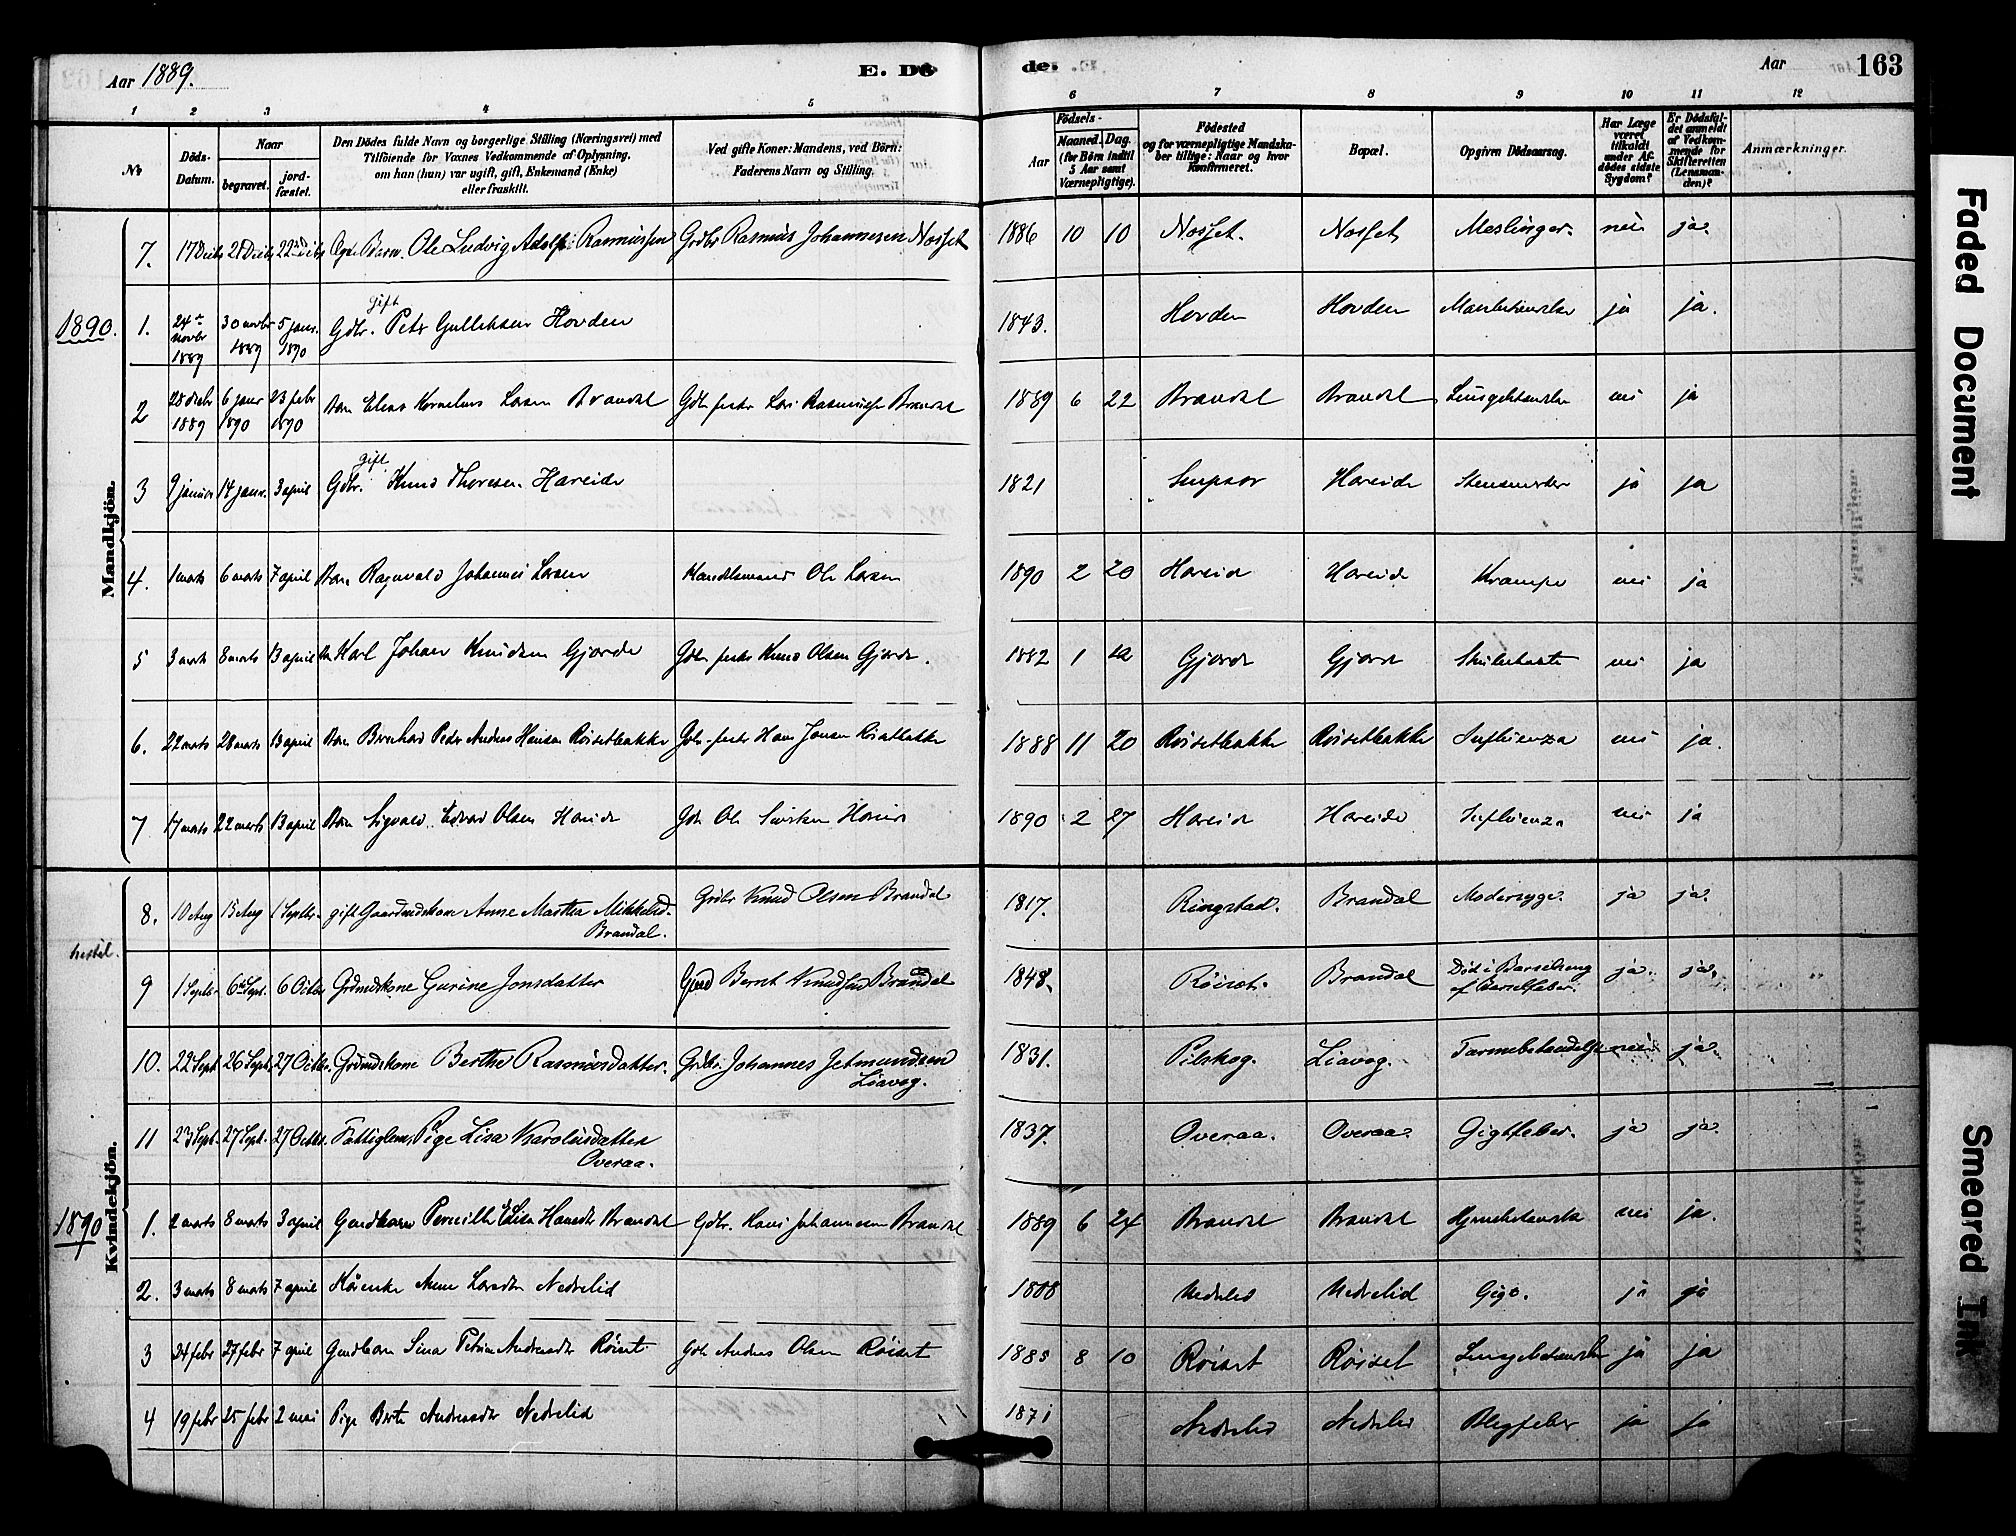 Aar 1889.
E. Dö
de.
Aar
163
1 2 3 4 5 6 7 8 9 10 11 12
No
Döds-Datum.
Naar
begravet.
jord-fæstet.
Den Dödes fulde Navn og borgerlige Stilling (Næringsvei) med
Tilföiende for Voxnes Vedkommende af Oplysning,
om han (hun) var ugift, gift, Enkemand (Enke)
eller fraskilt.
Ved gifte Koner: Mandens, ved Börn:
Faderens Navn og Stilling.
Födsels-
Aar
Maaned. Dag.
(for Börn indtil
5 Aar samt
Værnepligtige).
Födested
og for værnepligtige Mandska-
ber tillige: Naar og hvor
konfirmeret.
Bopæl.
Opgiven Dödsaarsag.
Har Læge
været
tilkaldt
under Af-
dødes sidste
Sygdom?
Er Dödsfal-
det anmeldt
af Vedkom-
mende for
Skifteretten
(Lensman-
den)?
Anmærkninger.
Mandkjön.
7. 17 Decbr 21 Decbr 22 Decbr Barn. Ole Ludvig Adolf Rasmussen Grdbr Rasmus Johannesen Nosset 1886 10 10 Nosset. Nosset Meslinger. nei ja.
1890.
1. 24de novbr 1889 30 novbr 1889 5 janr. 1890 Gdbr. gift Peter Gulliksen Hovden 1843. Hovden Hovden ja ja.
2 28 decbr 1889 6 janr 1890 23 febr 1890 Barn Elias Kornelius Larsen Brandal Gdbr Lars Rasmussen Brandal 1889 6 22 Brandal Brandal Lungebetændelse nei ja
3 9 januar 14 janr. 3 april Gdbr. gift Knud Thoresen Hareide 1821 Hareide ja ja
4. 1 marts 6 marts 7 april Barn Ragnvald Johannes Larsen Handelsmand Ole Larsen 1890 2 20 Hareid Hareide Krampe nei ja
5 3 marts 8 marts 13 april Karl Johan Knudsen Gjerde Gdbr Knud Olsen Gjerde. 1882 1 Gjerde Gjerde nei ja
6. 22 marts 28 marts 13 april Barn Bernhard Peder Andreas Hansen Röisetbakke Gdbr Hans Jensen 1888 11 20 Röisetbakke Röisetbakke Influenza nei ja.
7 17 marts 22 marts 13 april Barn Sigvald Edvard Olsen Hareide Gdbr Ole 1890 2 27 Hareid Hareide Influenza nei ja
Kvindekjön.
8. 10 Aug 15 Aug 1 Septbr. gift Gaardmdskone Anne Martha Mikkelsd.
Brandal. Grdbr Knud Olsen Brandal 1817. Ringstad. Brandal Modersyge. ja ja.
9 1 Septbr 6 Sept. 6 Octbr Grdmdskone Gurine Jonsdatter Bernt Knudsen Brandal 1848. Röiset. Brandal Död i Barselseng
af Barselfeber. ja ja.
10. 22 Sept 26 Sept. 27 Octbr. Grdmdskone Berthe Rasmusdatter. Grdbr. Johannes Jetmundsen
Liavog. 1831. Pilskog. Liavog. Tarmebetændelse nei ja.
11 23 Sept. 27 Sept. 27 Octbr. Fattiglem, Pige Lisa Karolusdatter
Overaa. 1837. Overaa. Overaa. Gigtfeber. ja ja.
1890
1. 2 marts 8 marts 3 april Gmdbarn Pernille Elisa Hansdtr Brandal Gdbr. Hans Johannesen Brandal 1889 6 24 Brandal Brandal nei ja.
2. 3 marts 8 marts 7 april Anne Larsdtr Nedrelid 1808 Nedrelid Nedrelid Gigt. ja ja
3 24 febr 27 febr 7 april Gmdbarn Sina Petrine Andreasdtr Röiset Gdbr Andreas Olsen Röiset 1885 8 10 Röiset Röiset Lungebetændelse ja ja
4 19 febr 25 febr 2 mai Pige Berte Andreasdtr Nedrelid 1871 Nedrelid Nedrelid ja ja
Faded Document
Smeared Ink